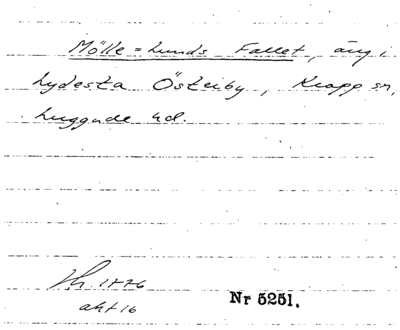 Mölle=Lunds Fallet, äng i
Lydesta Österby, Kropp sn,
Luggude hd.
1776
akt 16
Nr 5251.